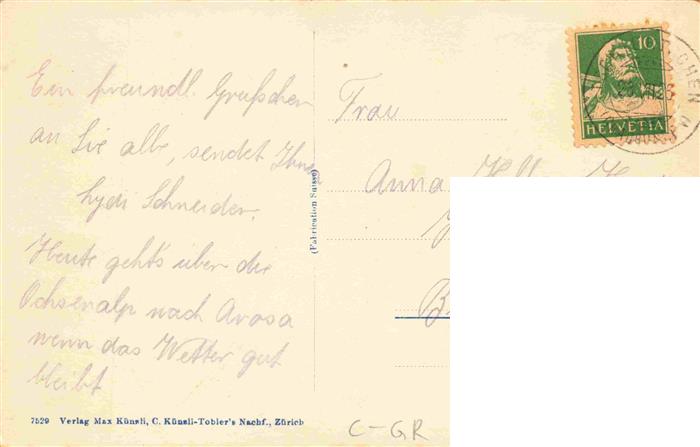 Ein freundl. Grüßchen
an Sie alle, sendet Ihnen
Hydi Schneider.
Heute geht's über die
Ochsenalp nach Arosa
wenn das Wetter gut
bleibt
Frau
Anna
10
HELVETIA
(Fabrication Suisse)
7529 Verlag Max Künzli, C. Künzli-Tobler's Nachf., Zürich
C-GR